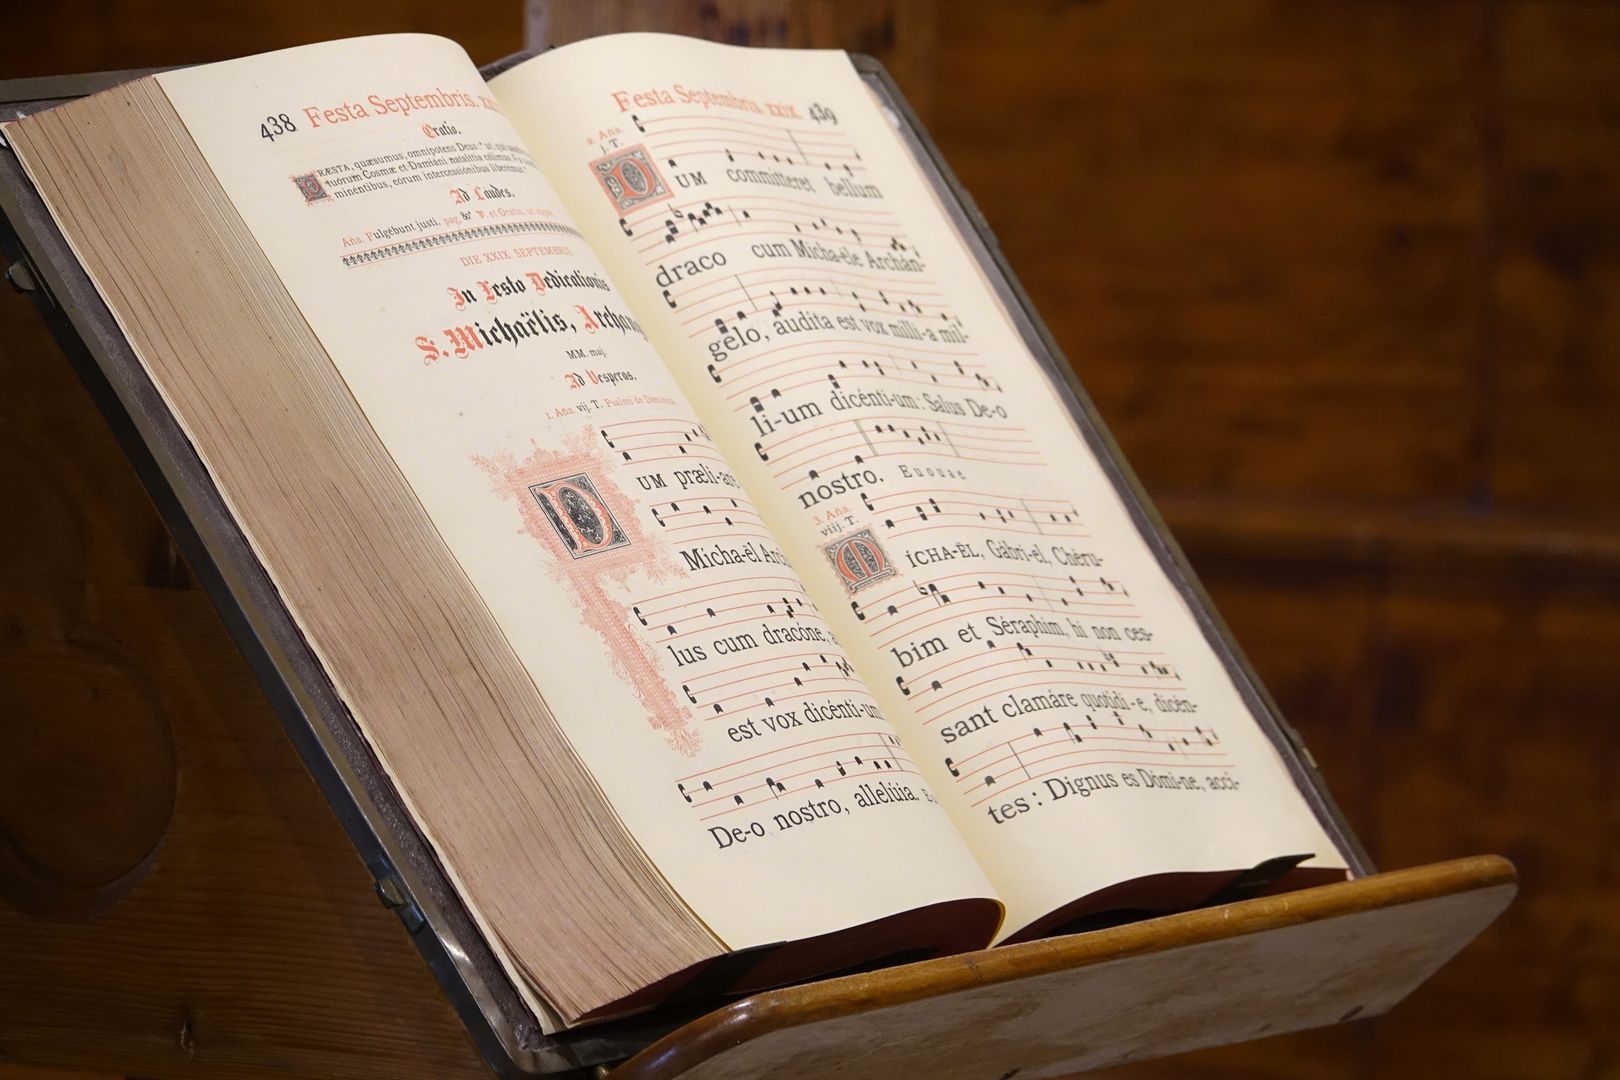 438 Festa Septembris.
Oratio.
PRÆSTA, quæsumus, omnipotens Deus: ut, qui
tuórum Cosmæ et Damiáni natalítia cólimus,
minéntibus, eórum intercessiónibus liberémur.
Ad Laudes.
Aña. Fulgébunt justi. pag. &c ℣. et Oratio, ut supra.
DIE XXIX SEPTEMBRIS
In Festo Dedicationis
S. Michaëlis,
MM. maj.
Ad Vesperas.
1. Aña. vij. T. Psalmi de Dominica
DUM præli-are
Micha-ël
lus cum dracóne,
est vox dicénti-um
De-o nostro, allelúia.
Festa Septembris. xxix 439
2. Aña.
j. T.
DUM committeret bellum
draco cum Micha-éle Archán-
gelo, audita est vox milli-a mil-
li-um dicénti-um: Salus De-o
nostro. Euouae
3. Aña.
viij. T.
MÍCHA-ËL, Gábri-el, Chéru-
bim et Séraphim, hi non ces-
sant clamáre quotídi-e, dicén-
tes: Dignus es Dómi-ne, accí-